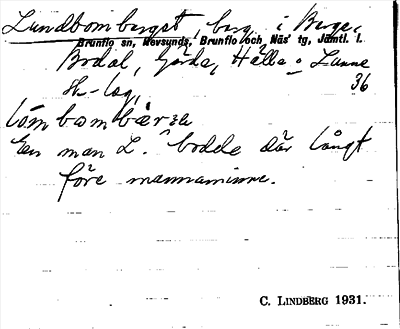 Lundbomberget, berg i Berge,
Brunflo sn, Revsunds, Brunflo och Näs' tg, Jämtl. l.
Bodal, Gärda, Hälle o Lunne
36
Sk-lag,
En man L. bodde där långt
före mannaminne.
C. LINDBERG 1931.